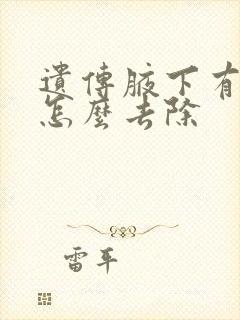 遺傳腋下有
怎麼去除
雷平